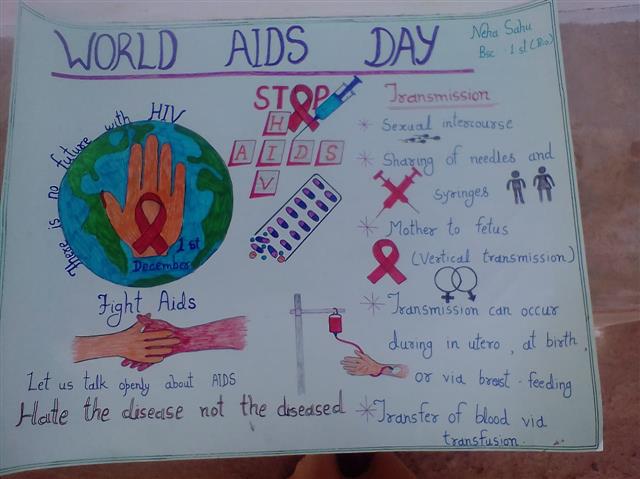 WORLD AIDS DAY
Neha Sahu
Bsc 1st (Bio)
There is no future with HIV
1st
December
Fight Aids
Let us talk openly about AIDS
Hate the disease not the diseased
STOP
H
AIDS
V
Transmission
Sexual intercourse
Sharing of needles and
syringes
Mother to fetus
(Vertical transmission)
Transmission can occur
during in utero, at birth,
or via breast-feeding
Transfer of blood via
transfusion.